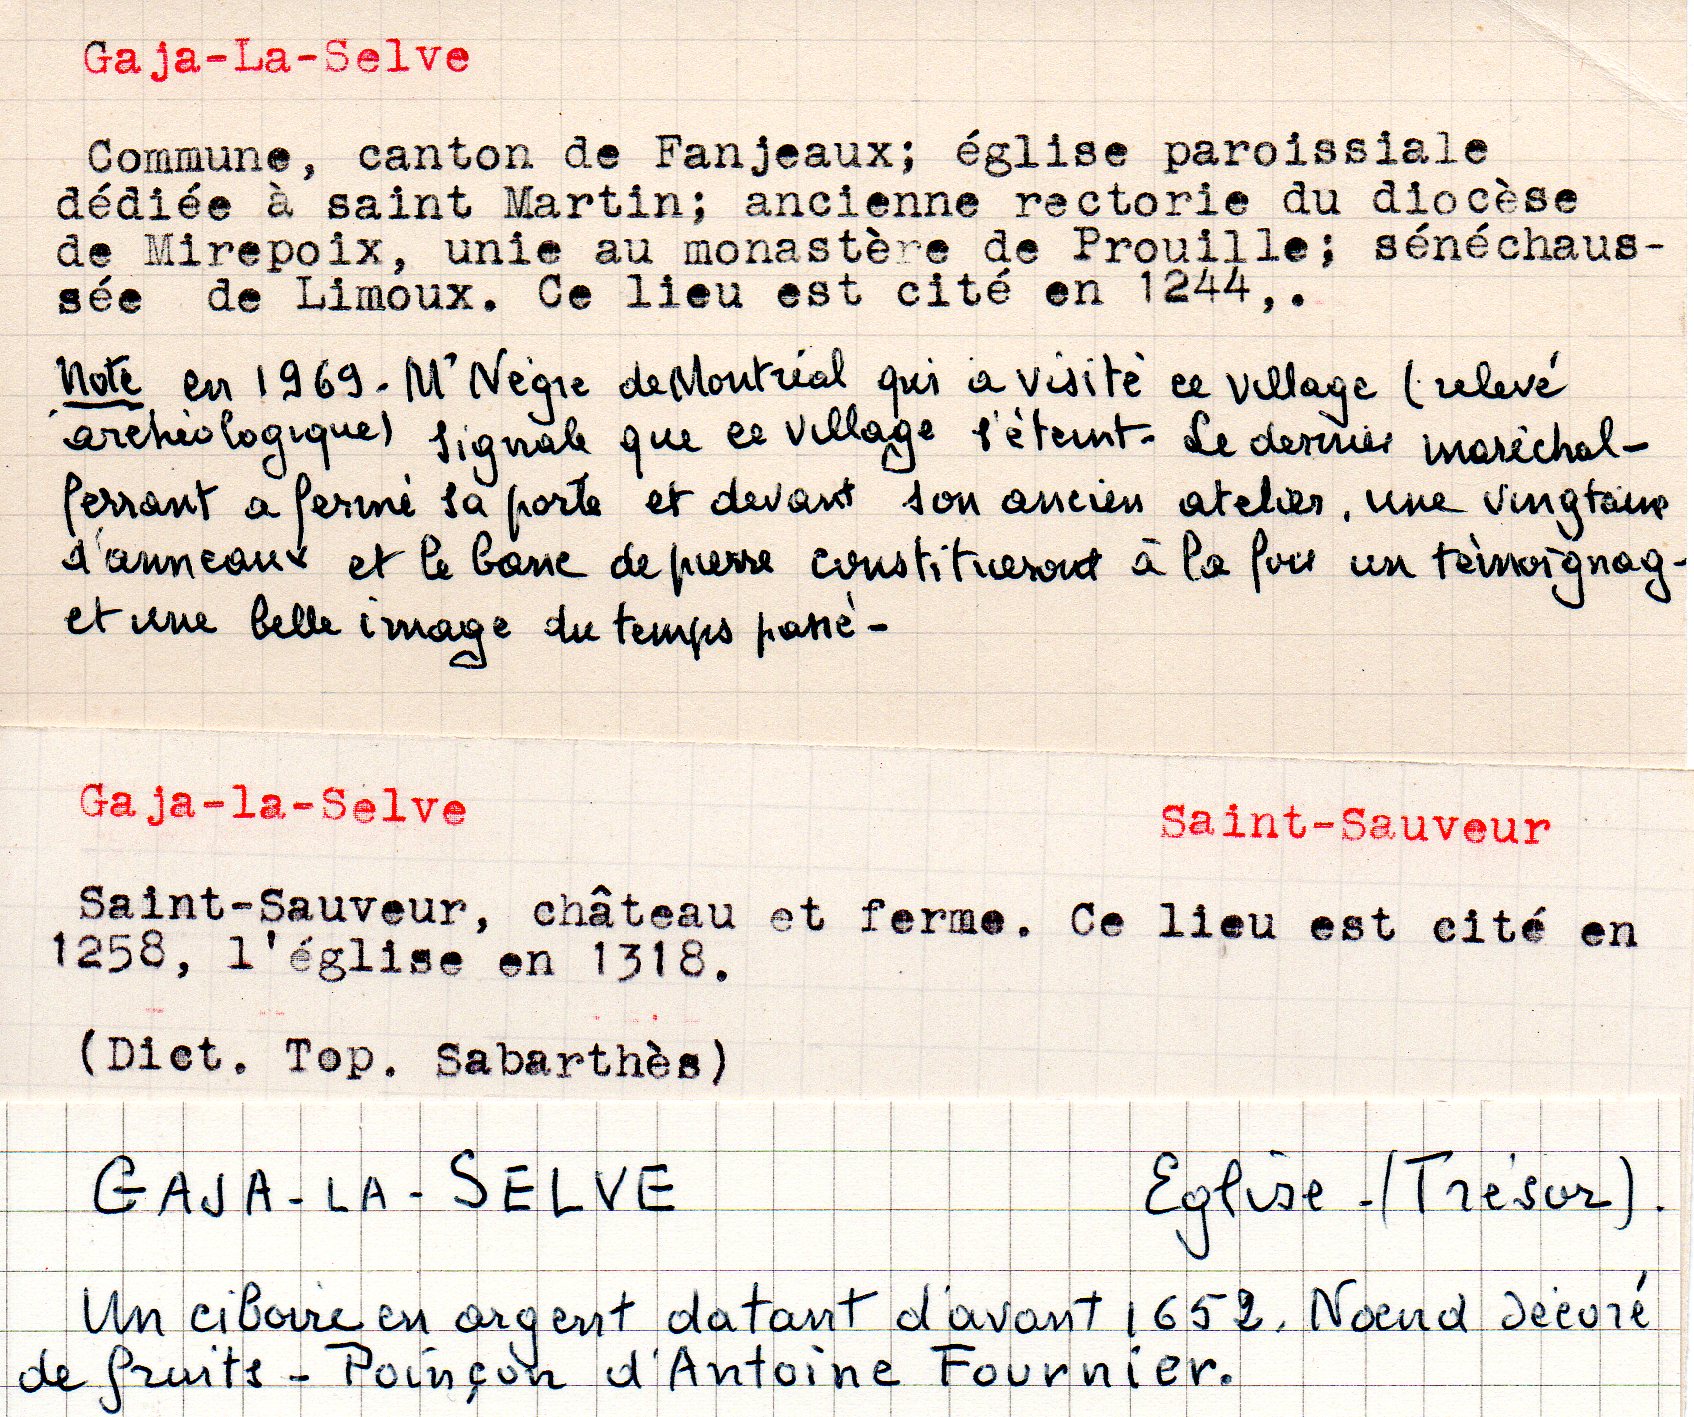 Gaja-La-Selve
Commune, canton de Fanjeaux; église paroissiale
dédiée à saint Martin; ancienne rectorie du diocèse
de Mirepoix, unie au monastère de Prouille; sénéchaus-
sée de Limoux. Ce lieu est cité en 1244,.
Note en 1969. Mr Nègre de Montréal qui a visité ce village (relevé
archéologique) signale que ce village s'éteint. Le dernier maréchal-
ferrant a fermé sa porte et devant son ancien atelier, une vingtaine
d'anneaux et le banc de pierre constitueront à la fois un témoignag-
et une belle image du temps passé-
Gaja-la-Selve Saint-Sauveur
Saint-Sauveur, château et ferme. Ce lieu est cité en
1258, l'église en 1318.
(Dict. Top. Sabarthès)
GAJA-LA-SELVE Eglise-(Trésor).
Un ciboire en argent datant d'avant 1652. Noeud décoré
de fruits - Poinçon d'Antoine Fournier.